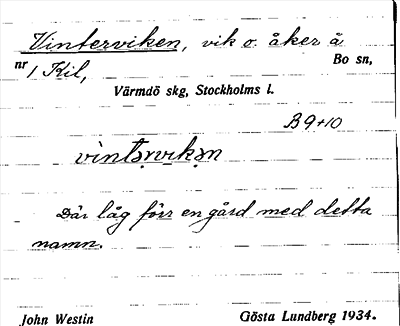 Vinterviken, vik o. åker å
nr 1 Kil, Bo sn,
Värmdö skg, Stockholms l.
B 9+10
vintərvikən
Där låg förr en gård med detta
namn.
John Westin Gösta Lundberg 1934.